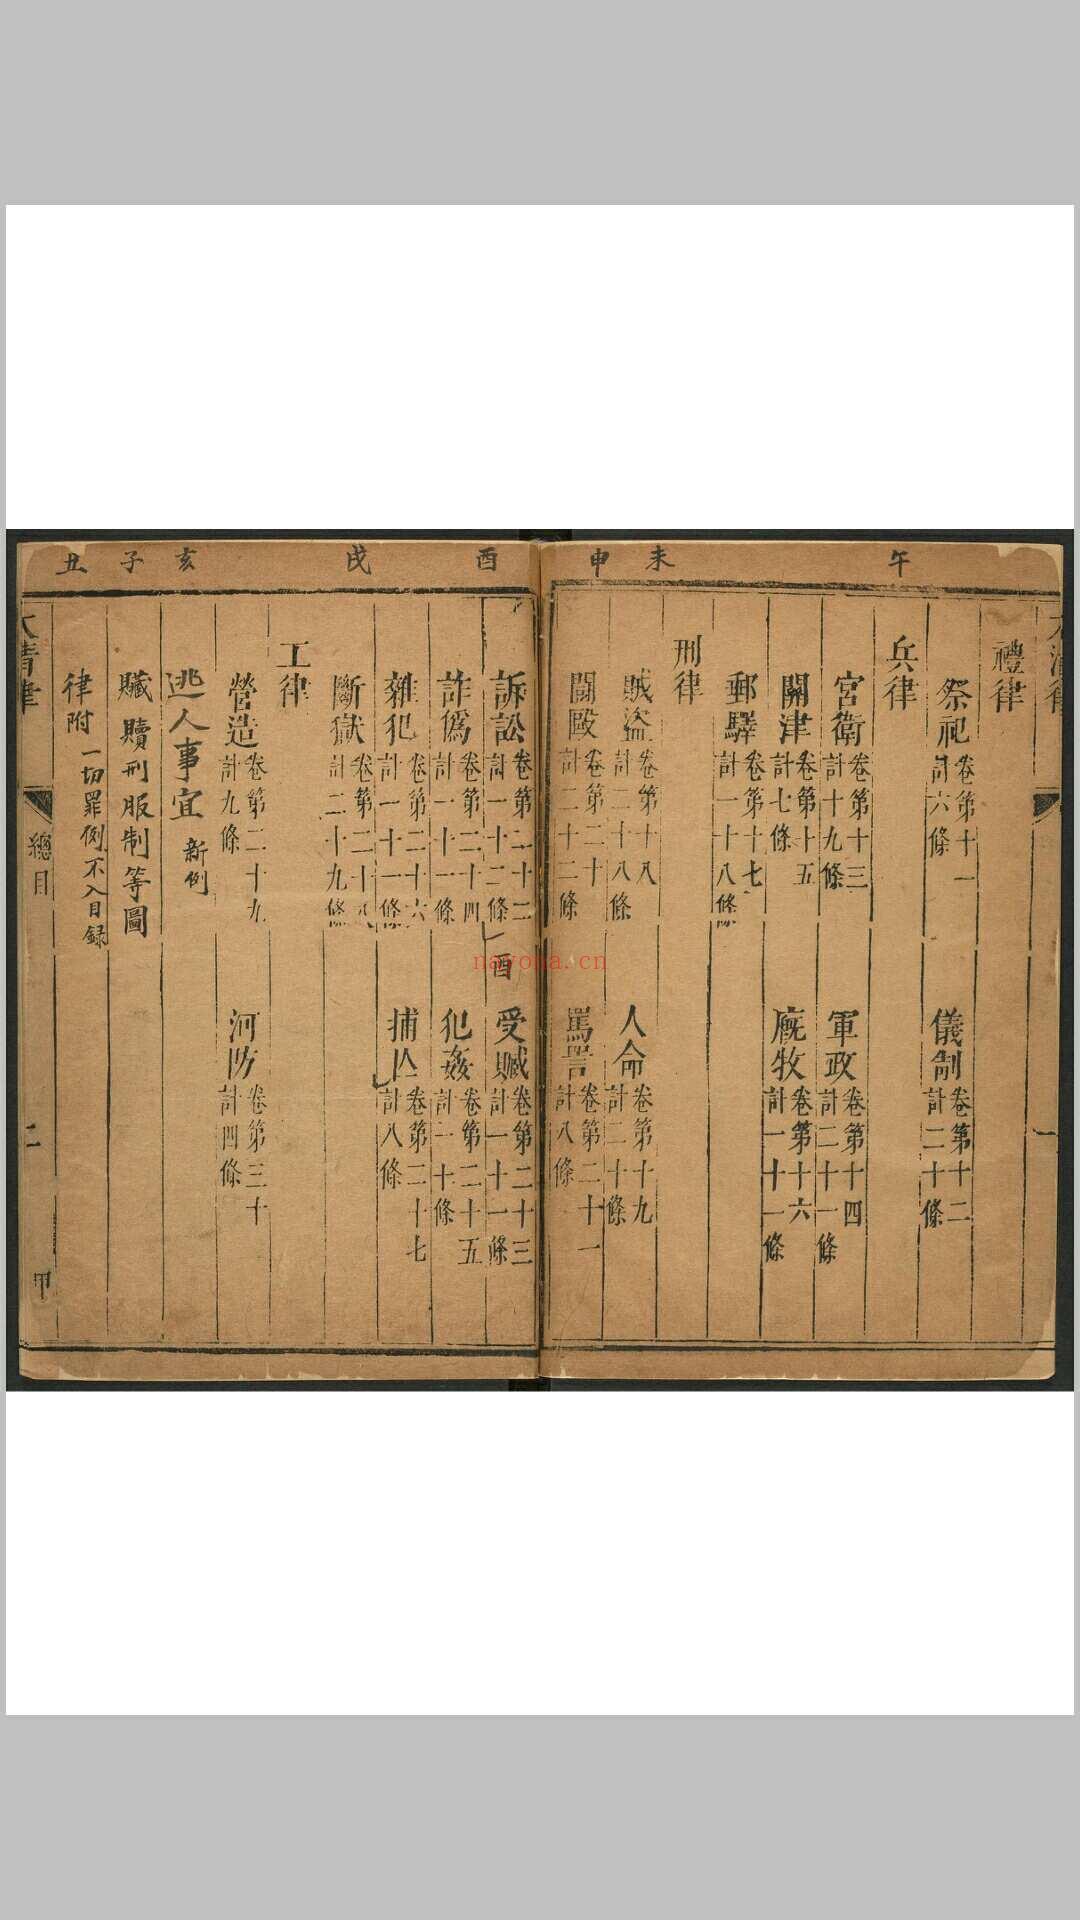 午
未
申
酉
戌
亥
子
丑
大清律
一
禮律
祭祀 卷第十一 計六條
儀制 卷第十二 計二十條
兵律
宮衛 卷第十三 計十九條
軍政 卷第十四 計二十一條
關津 卷第十五 計七條
廐牧 卷第十六 計一十一條
郵驛 卷第十七 計一十八條
刑律
賊盜 卷第十八 計二十八條
人命 卷第十九 計二十條
鬪毆 卷第二十 計二十二條
罵詈 卷第二十一 計八條
訴訟 卷第二十二 計一十二條
酉
受贓 卷第二十三 計一十一條
詐僞 卷第二十四 計一十一條
犯姦 卷第二十五 計一十條
雜犯 卷第二十六 計一十一條
捕亡 卷第二十七 計八條
斷獄 卷第二十八 計二十九條
工律
營造 卷第二十九 計九條
河防 卷第三十 計四條
逃人事宜 新例
贓贖刑服制等圖
律附 一切罪例不入目録
大清律
總目
二
甲
nayona.cn